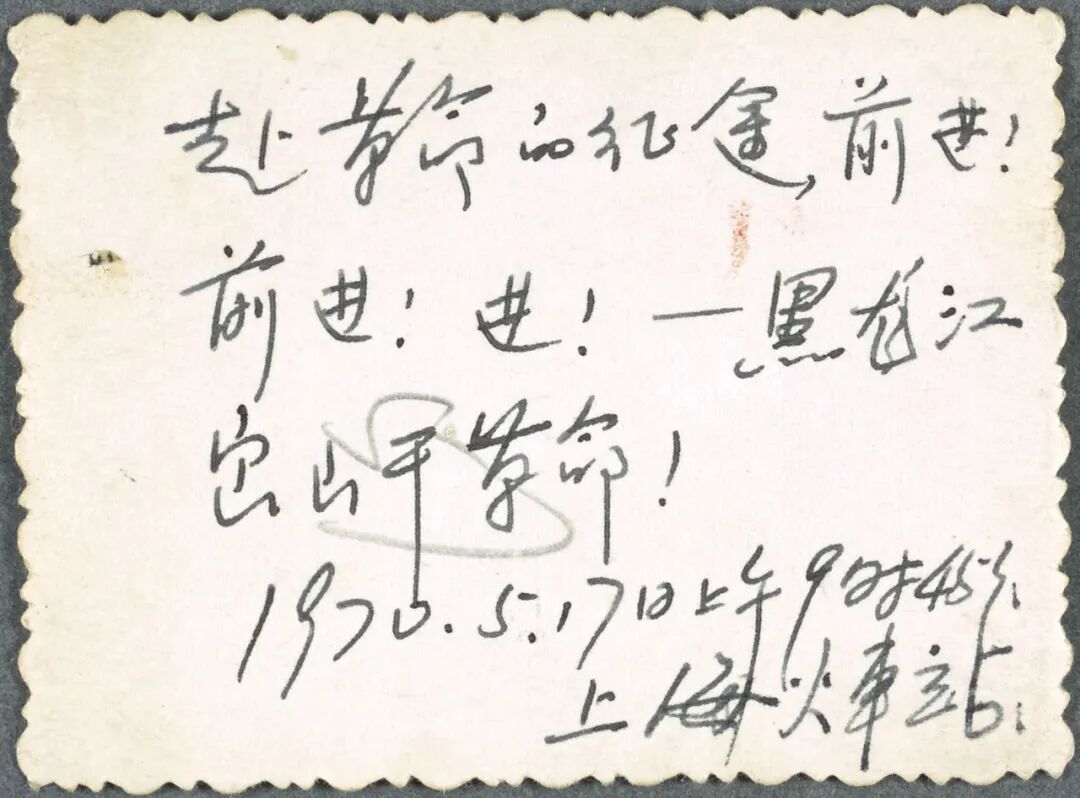 赴革命的征途,前进!
前进!进!—黑龙江
密山干革命!
1970.5.17日上午9时45分.
上海火车站.